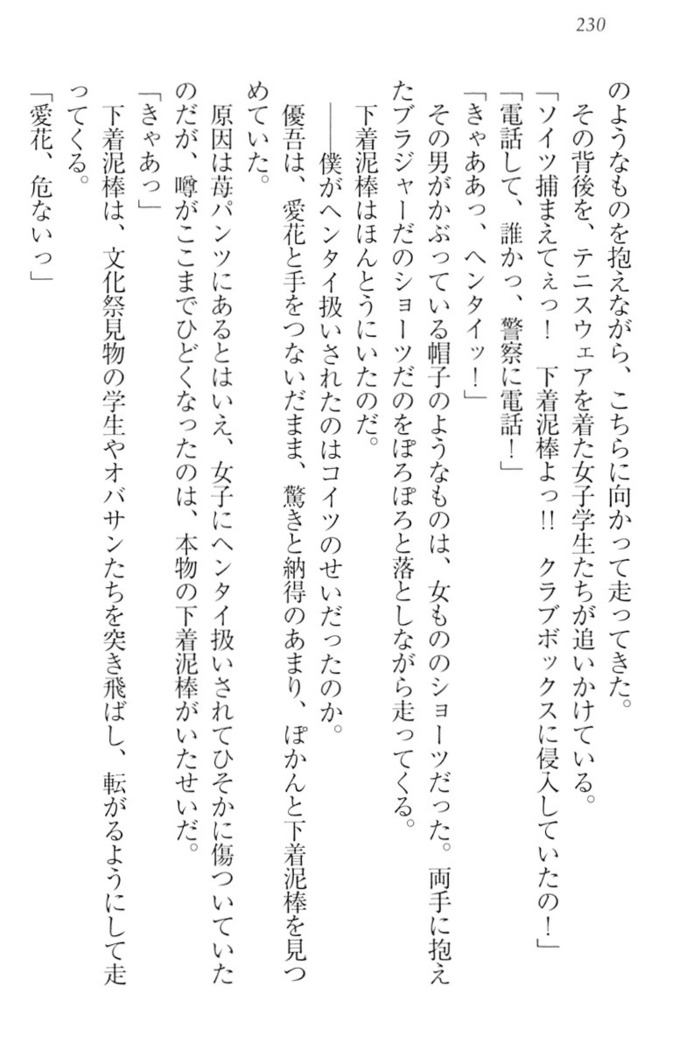 230
のようなものを抱えながら、こちらに向かって走ってきた。
その背後を、テニスウェアを着た女子学生たちが追いかけている。
「ソイツ捕まえてぇっ！　下着泥棒よっ!!　クラブボックスに侵入していたの！」
「電話して、誰かっ、警察に電話！」
「きゃああっ、ヘンタイッ！」
その男がかぶっている帽子のようなものは、女もののショーツだった。両手に抱え
たブラジャーだのショーツだのをぽろぽろと落としながら走ってくる。
下着泥棒はほんとうにいたのだ。
――僕がヘンタイ扱いされたのはコイツのせいだったのか。
優吾は、愛花と手をつないだまま、驚きと納得のあまり、ぽかんと下着泥棒を見つ
めていた。
原因は苺パンツにあるとはいえ、女子にヘンタイ扱いされてひそかに傷ついていた
のだが、噂がここまでひどくなったのは、本物の下着泥棒がいたせいだ。
「きゃあっ」
下着泥棒は、文化祭見物の学生やオバサンたちを突き飛ばし、転がるようにして走
ってくる。
「愛花、危ないっ」